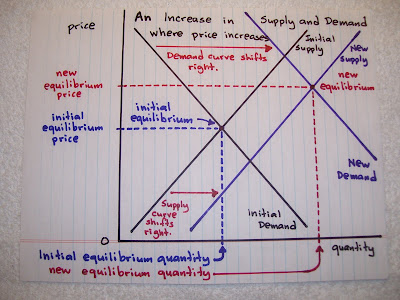 price
An Increase in Supply and Demand
where price increases
Demand curve shifts
right.
Initial
supply
New
supply
new
equilibrium
price
new
equilibrium
initial
equilibrium
initial
equilibrium
price
New
Demand
Supply
curve
shifts
right.
Initial
Demand
0
quantity
Initial equilibrium quantity
new equilibrium quantity